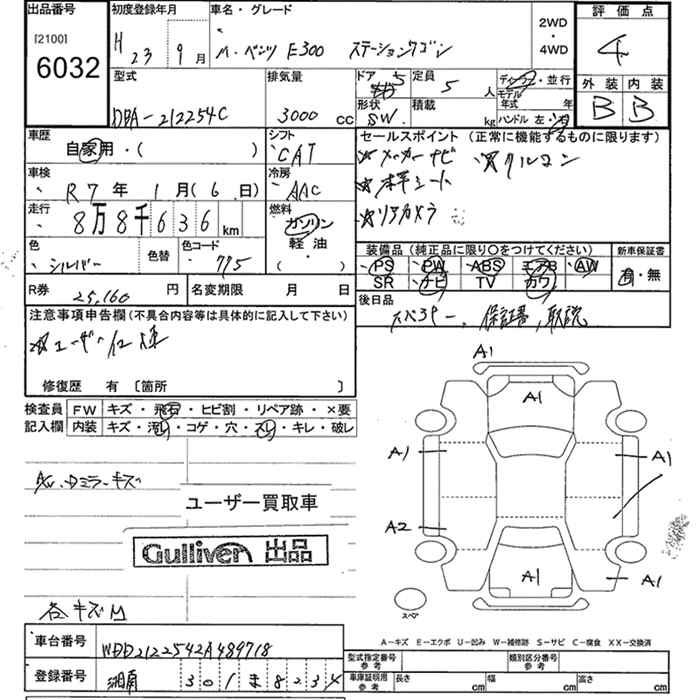 出品番号 初度登録年月 車名・グレード 2WD・4WD 評価点
[2100]
6032
H 23年 9月 M・ベンツ E300 ステーションワゴン 4
型式 排気量 ドア 5 定員 5人 ディーラー・並行 外装 内装
モデル年式 年
DBA-212254C 3000cc 形状 SW. 積載 kg ハンドル 左・右 B B
車歴 シフト セールスポイント (正常に機能するものに限ります)
自家用・( ) CAT メーカーナビ
車検 冷房 本革シート
R7年 1月(6日) AAC
走行 燃料 リアカメラ
8万8千636km ガソリン
軽油・
( )
色 色替 色コード 装備品 (純正品に限り○をつけてください) 新車保証書
シルバー 775 PS PW ABS エアB AW 有・無
SR ナビ TV カワ
R券 25,160円 名変期限 月 日 後日品
注意事項申告欄(不具合内容等は具体的に記入して下さい) スペアキー、保証書、取説
ユーザー仕様
修復歴 有 [箇所 ]
検査員記入欄 FW キズ・飛石・ヒビ割・リペア跡・×要
内装 キズ・汚れ・コゲ・穴・スレ・キレ・破レ
A1
A1
A1 A1
ミラーキズ
ユーザー買取車
A2
Gulliver 出品
A1 A1
スペア
各キズ
A-キズ E-エクボ U-凹み W-補修跡 S-サビ C-腐食 XX-交換済
車台番号 WDD2122542A489718
型式指定番号参考 類別区分番号参考
登録番号 湘南 301 ま 8234
車庫証明用参考 長さ cm 幅 cm 高さ cm